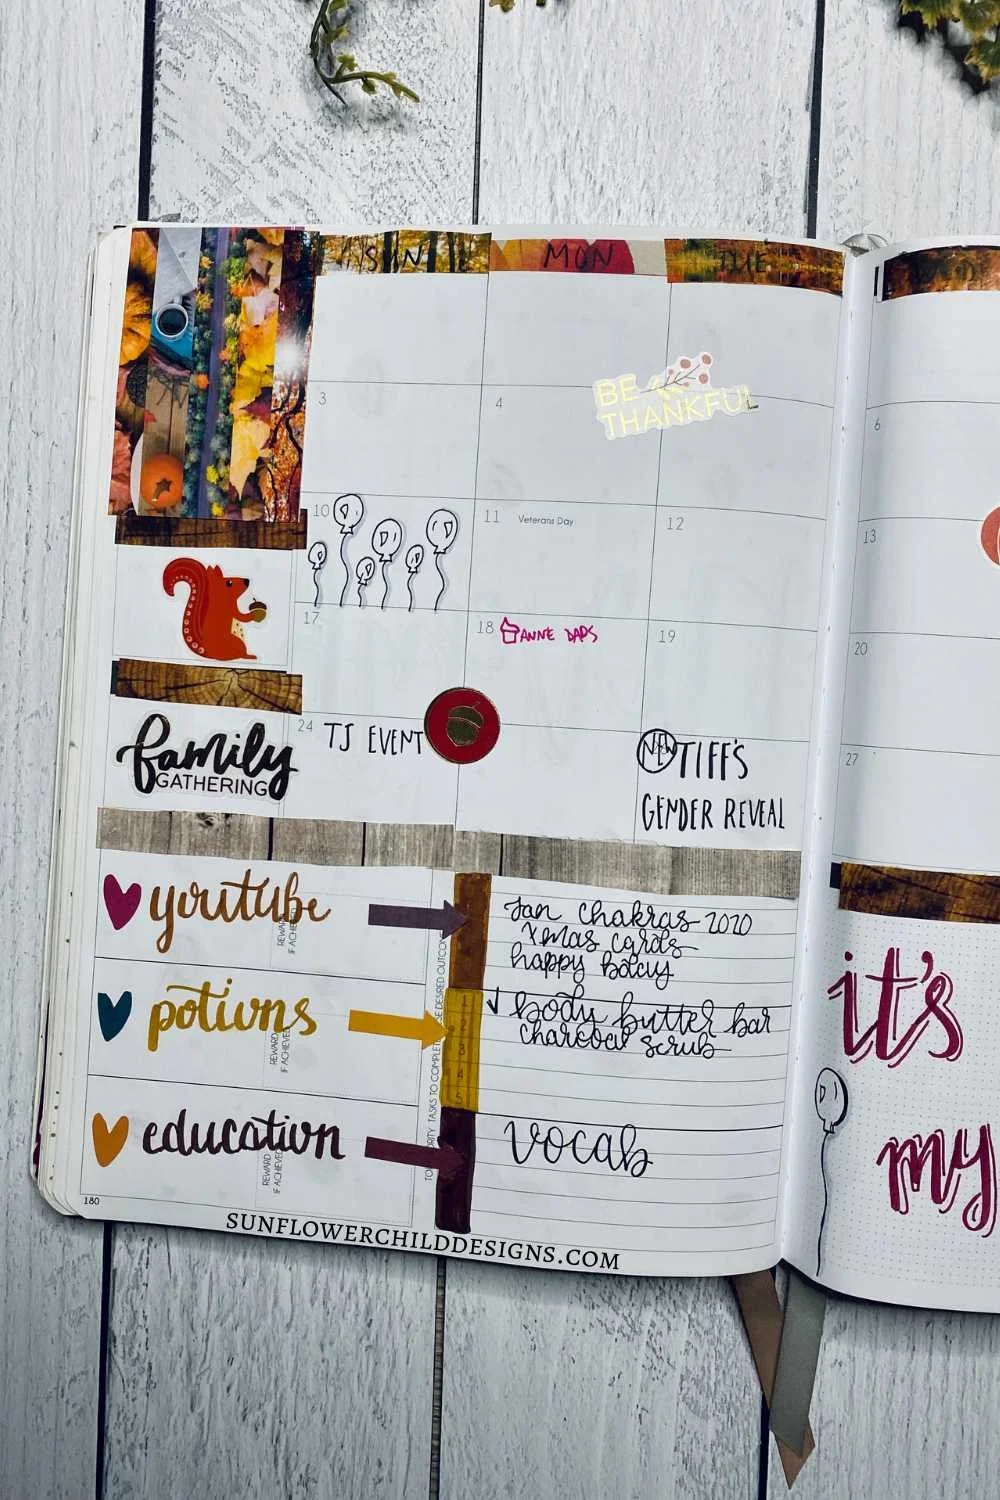 SUN MON TUE
BE
THANKFUL
3 4 6
10 11 Veterans Day 12 13
17 18 ANNE DADS 19 20
24 TJ EVENT 27
NEW TIFF'S
GENDER REVEAL
family
GATHERING
youtube
REWARD
IF ACHIEVED
Jan chakras 2020
xmas cards
happy
potions
REWARD
IF ACHIEVED
✓ body butter bar
charcoal scrub
education
REWARD
IF ACHIEVED
vocab
1
2
3
4
5
it's
my
180
SUNFLOWERCHILDDESIGNS.COM